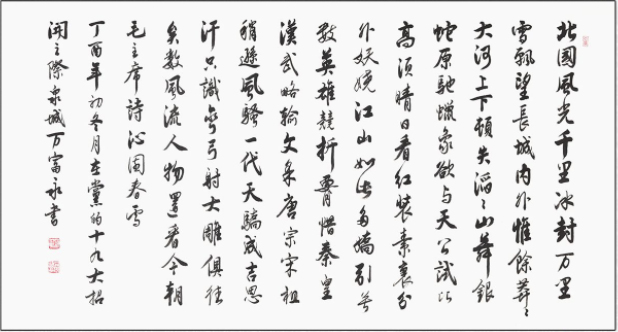 北國風光千里冰封万里
雪飄望長城内外惟餘莽〻
大河上下頓失滔〻山舞銀
蛇原馳蠟象欲与天公試比
高須晴日看紅裝素裹分
外妖嬈江山如此多嬌引无
數英雄競折腰惜秦皇
漢武略輸文采唐宗宋祖
稍遜風騷一代天驕成吉思
汗只識彎弓射大雕俱往
矣數風流人物還看今朝
毛主席詩沁園春雪
丁酉年初冬月在黨的十九大招
開之際泉城万富永書